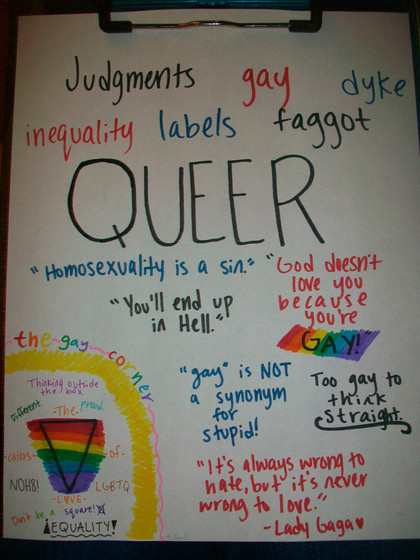 Judgments gay dyke
inequality labels faggot
QUEER
"Homosexuality is a sin."
"You'll end up
in Hell."
"God doesn't
love you
because
you're
GAY!"
"gay" is NOT
a synonym
for
stupid!
Too gay to
think
straight.
"It's always wrong to
hate, but it's never
wrong to love."
-Lady Gaga♥
the gay corner
Thinking outside
the box.
Different
-The-
proud.
-colors-
-of-
NOH8!
LGBTQ
-LOVE-
Don't be a square!
¡EQUALITY!